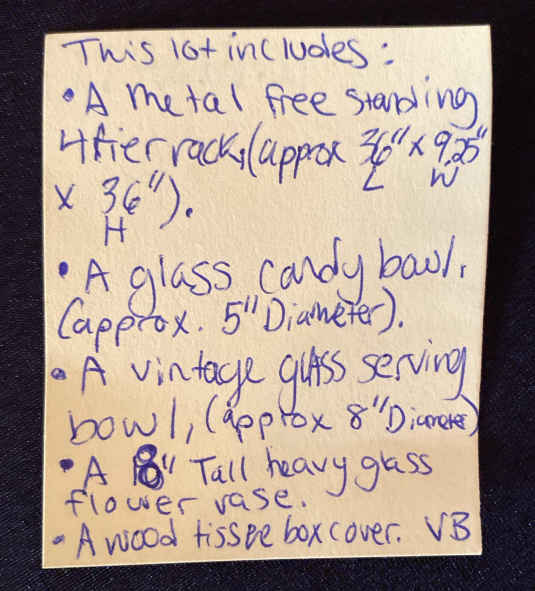 This lot includes:
• A metal free standing
4 tier rack, (approx 36" x 9.25"
L W
x 36").
H
• A glass candy bowl,
(approx. 5" Diameter).
• A vintage glass serving
bowl, (approx 8" Diameter)
• A 8" Tall heavy glass
flower vase.
• A wood tissee box cover. VB